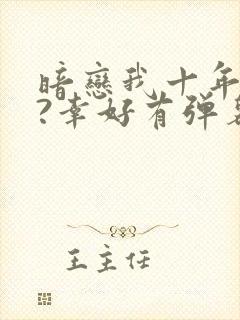 暗戀我十年
?幸好有弹幕
王主任